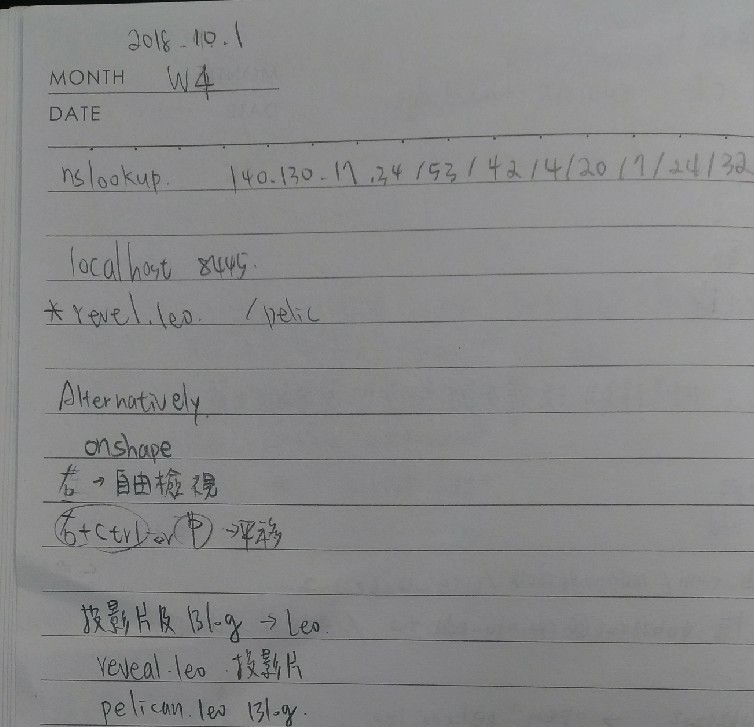 2018.10.1
MONTH W4
DATE
nslookup. 140.130.17.34 /53 / 42 /4 /20 /7 /24 /32
localhost 8445.
* revel.leo. /pelic
Alternatively.
onshape
右 → 自由檢視
右+Ctrl or 中 → 平移
投影片及 Blog → Leo.
reveal.leo 投影片
pelican.leo Blog.